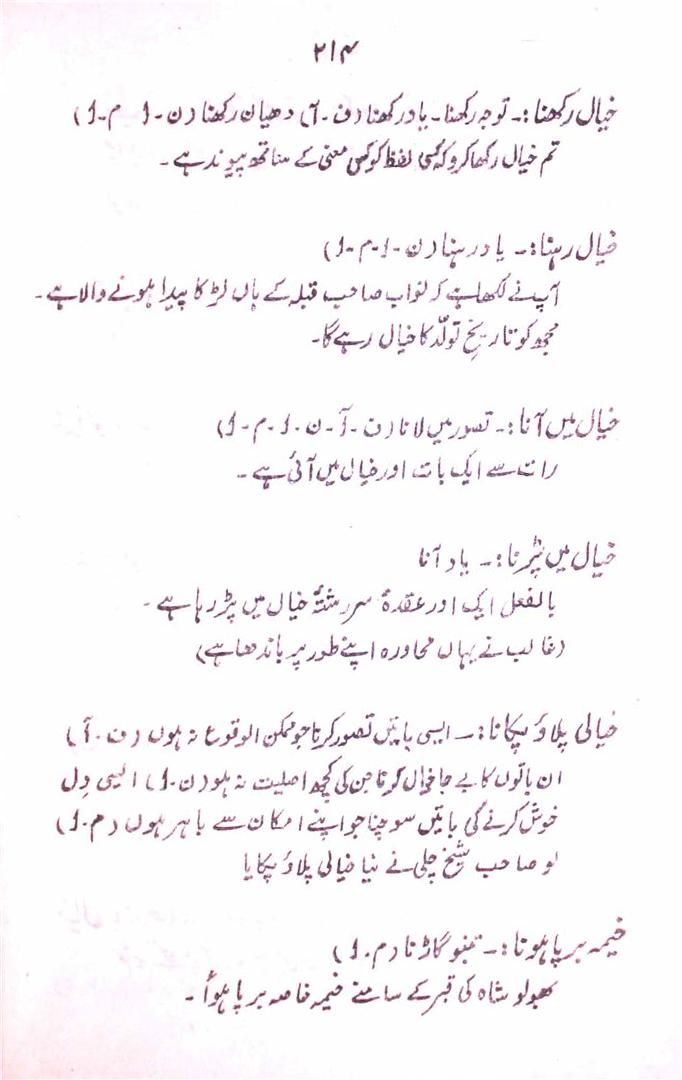 ۲۱۴
خیال رکھنا :۔ توجہ رکھنا ۔ یاد رکھنا (ف ۔ آ) دھیان رکھنا (ن ۔ ا ۔ م ۔ ا)
تم خیال رکھا کرو کہ کسی لفظ کو کس معنی کے ساتھ پیوند ہے ۔
خیال رہنا :۔ یاد رہنا (ن ۔ ا ۔ م ۔ ا)
آپ نے لکھا ہے کہ نواب صاحب قبلہ کے ہاں لڑکا پیدا ہونے والا ہے ۔
مجھ کو تاریخِ تولّد کا خیال رہے گا۔
خیال میں آنا :۔ تصور میں لانا (ف ۔ آ ۔ ن ۔ ا ۔ م ۔ ا)
رات سے ایک بات اور خیال میں آئی ہے ۔
خیال میں پڑنا :۔ یاد آنا
بالفعل ایک اور عقدہ سررشتۂ خیال میں پڑ رہا ہے ۔
(غالب نے یہاں محاورہ اپنے طور پر باندھا ہے)
خیالی پلاؤ پکانا :۔ ایسی باتیں تصور کرنا جو ممکن الوقوع نہ ہوں (ف ۔ آ)
ان باتوں کا بے جا خیال کرنا جن کی کچھ اصلیت نہ ہو (ن ۔ ا) ایسی دل
خوش کرنے کی باتیں سوچنا جو اپنے امکان سے باہر ہوں (م ۔ ا)
لو صاحب شیخ چلی نے نیا خیالی پلاؤ پکایا
خیمہ برپا ہونا :۔ تمبو گاڑنا (م ۔ ا)
بھولو شاہ کی قبر کے سامنے خیمہ خاصہ برپا ہوا ۔